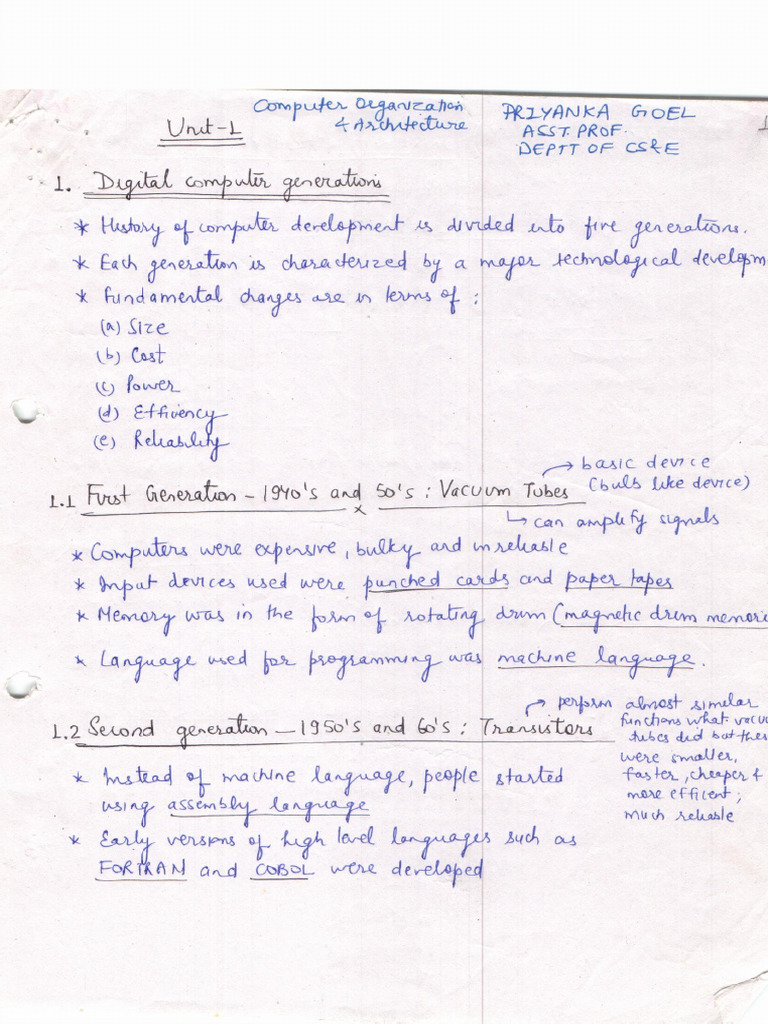 Computer Organization
& Architecture
PRIYANKA GOEL
ASST. PROF.
DEPTT OF CS&E
1
Unit-1
1. Digital computer generations
* History of computer development is divided into five generations.
* Each generation is characterized by a major technological developm
* Fundamental changes are in terms of :
(a) Size
(b) Cost
(c) Power
(d) Effivency
(e) Reliability
→ basic device
(bulb like device)
1.1 First Generation - 1940's and 50's : Vacuum Tubes
↳ can amplify signals
* Computers were expensive, bulky and unreliable
* Input devices used were punched cards and paper tapes
* Memory was in the form of rotating drum (magnetic drum memori
* Language used for programming was machine language.
1.2 Second generation - 1950's and 60's : Transistors
→ perform almost similar
functions what vacu
tubes did but thes
were smaller,
faster, cheaper &
more efficent;
much reliable
* Instead of machine language, people started
using assembly language
* Early versions of high level languages such as
FORTRAN and COBOL were developed